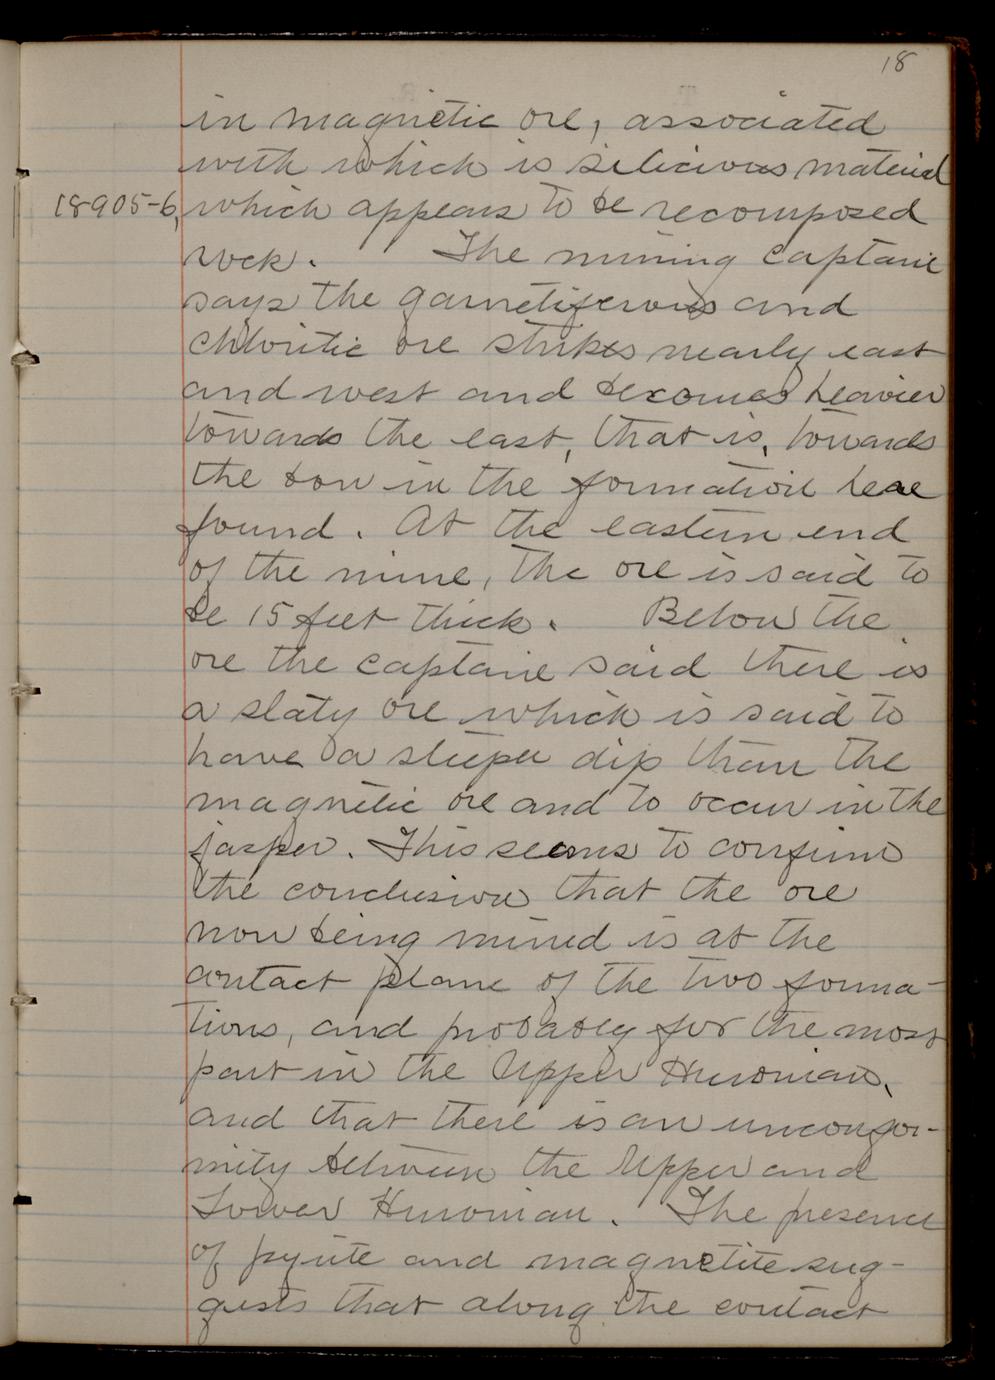 18
in magnetic ore, associated
with which is silicious material
18905-6, which appears to be recomposed
rock. The mining captain
says the garnetiferous and
chloritic ore strikes nearly east
and west and becomes heavier
towards the east, that is, towards
the bow in the formation here
found. At the eastern end
of the mine, the ore is said to
be 15 feet thick. Below the
ore the captain said there is
a slaty ore which is said to
have a steeper dip than the
magnetic ore and to occur in the
jasper. This seems to confirm
the conclusion that the ore
now being mined is at the
contact plane of the two forma-
tions, and probably for the most
part in the Upper Huronian,
and that there is an unconfor-
mity between the Upper and
Lower Huronian. The presence
of pyrite and magnetite sug-
gests that along the contact